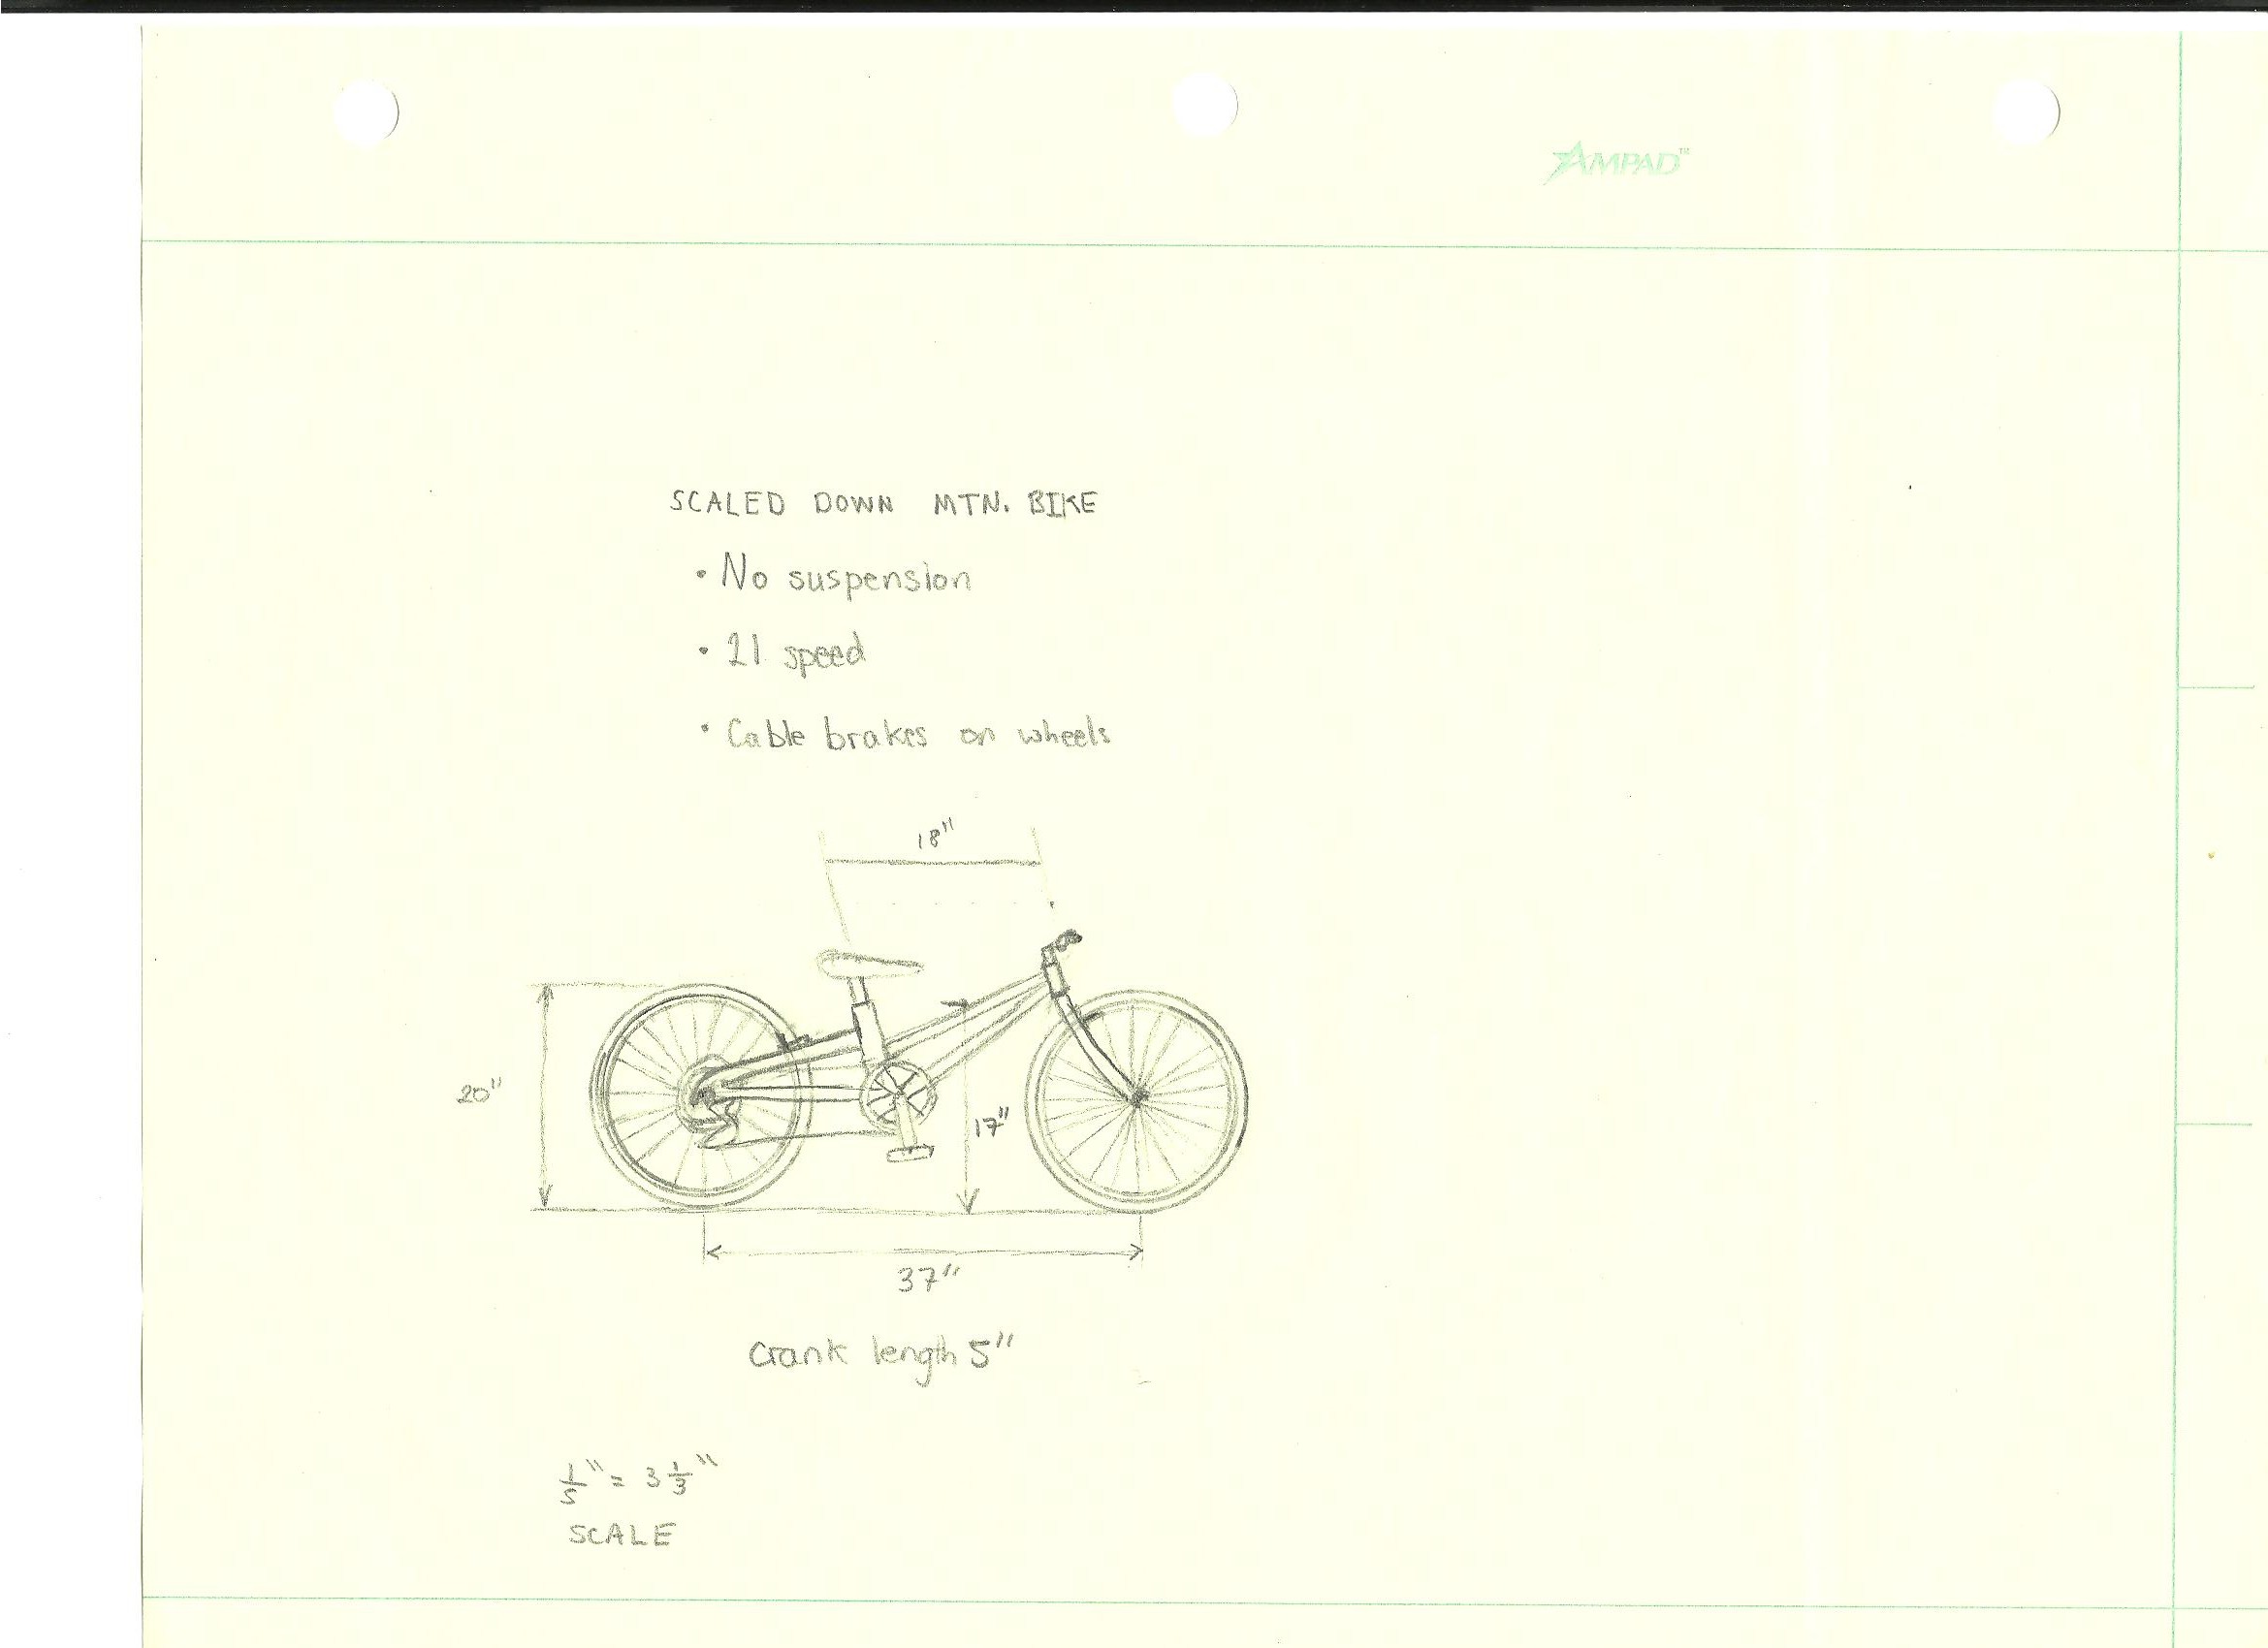 AMPAD™
SCALED DOWN MTN. BIKE
• No suspension
• 21 speed
• Cable brakes on wheels
18"
20"
17"
37"
Crank length 5"
1/5" = 3 1/3"
SCALE